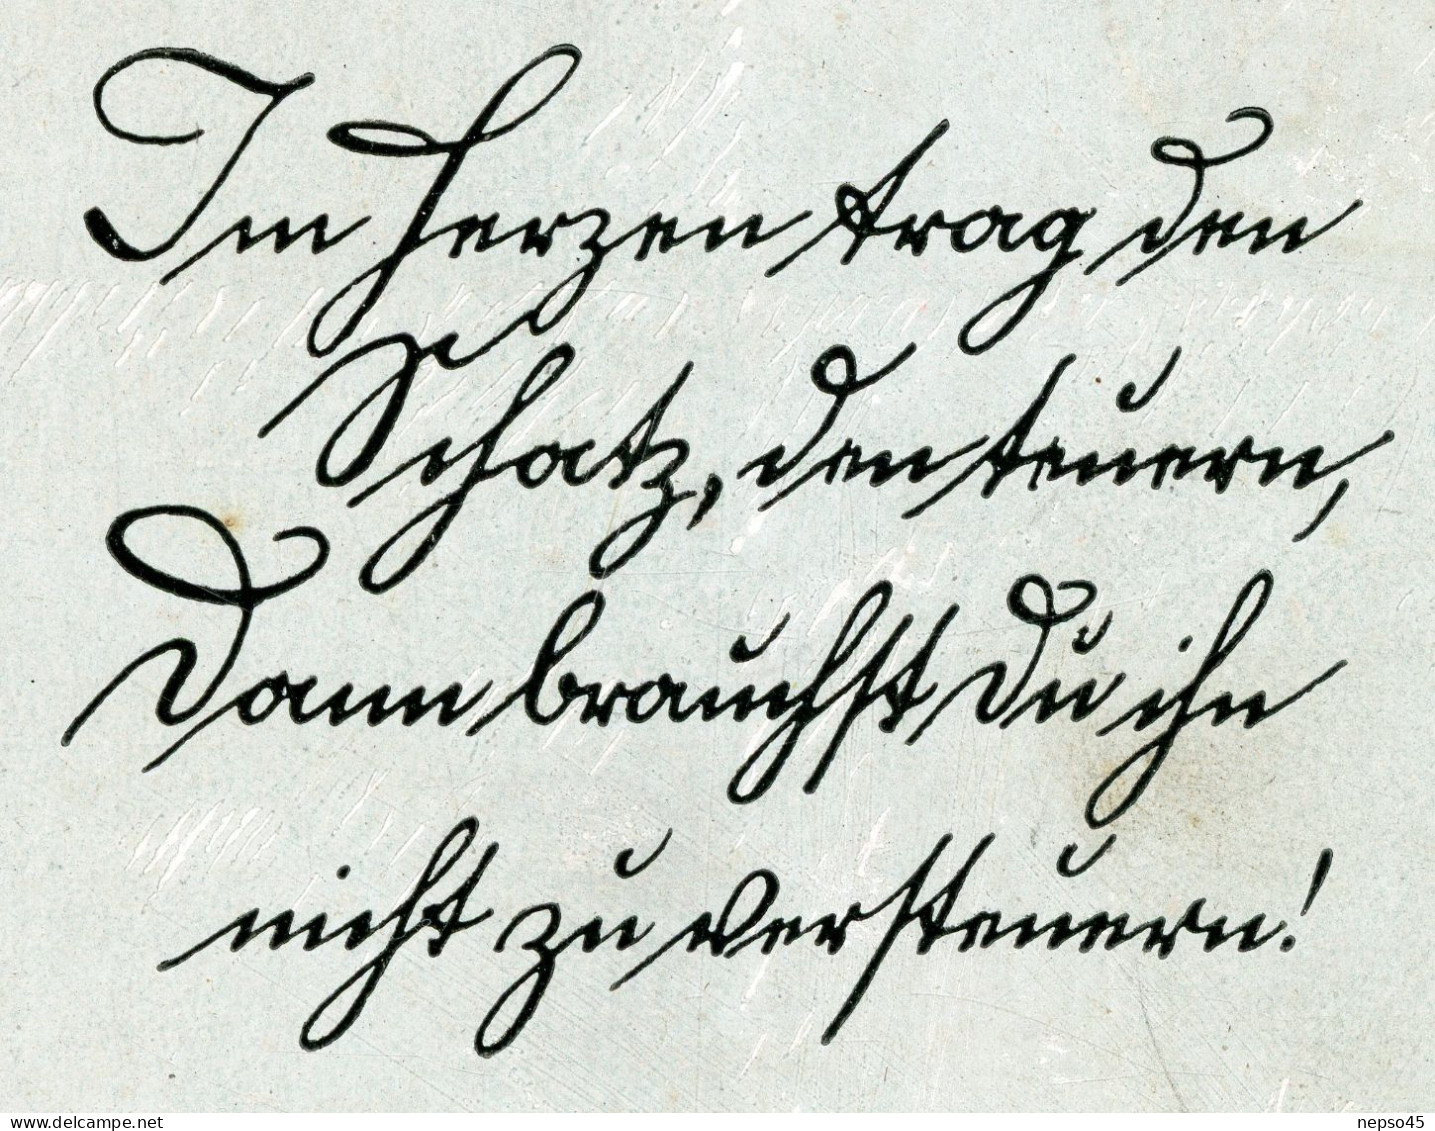 Im Herzen trag den
Schatz, den teuern,
Dann brauchst Du ihn
nicht zu versteuern!
delcampe.net
nepso45